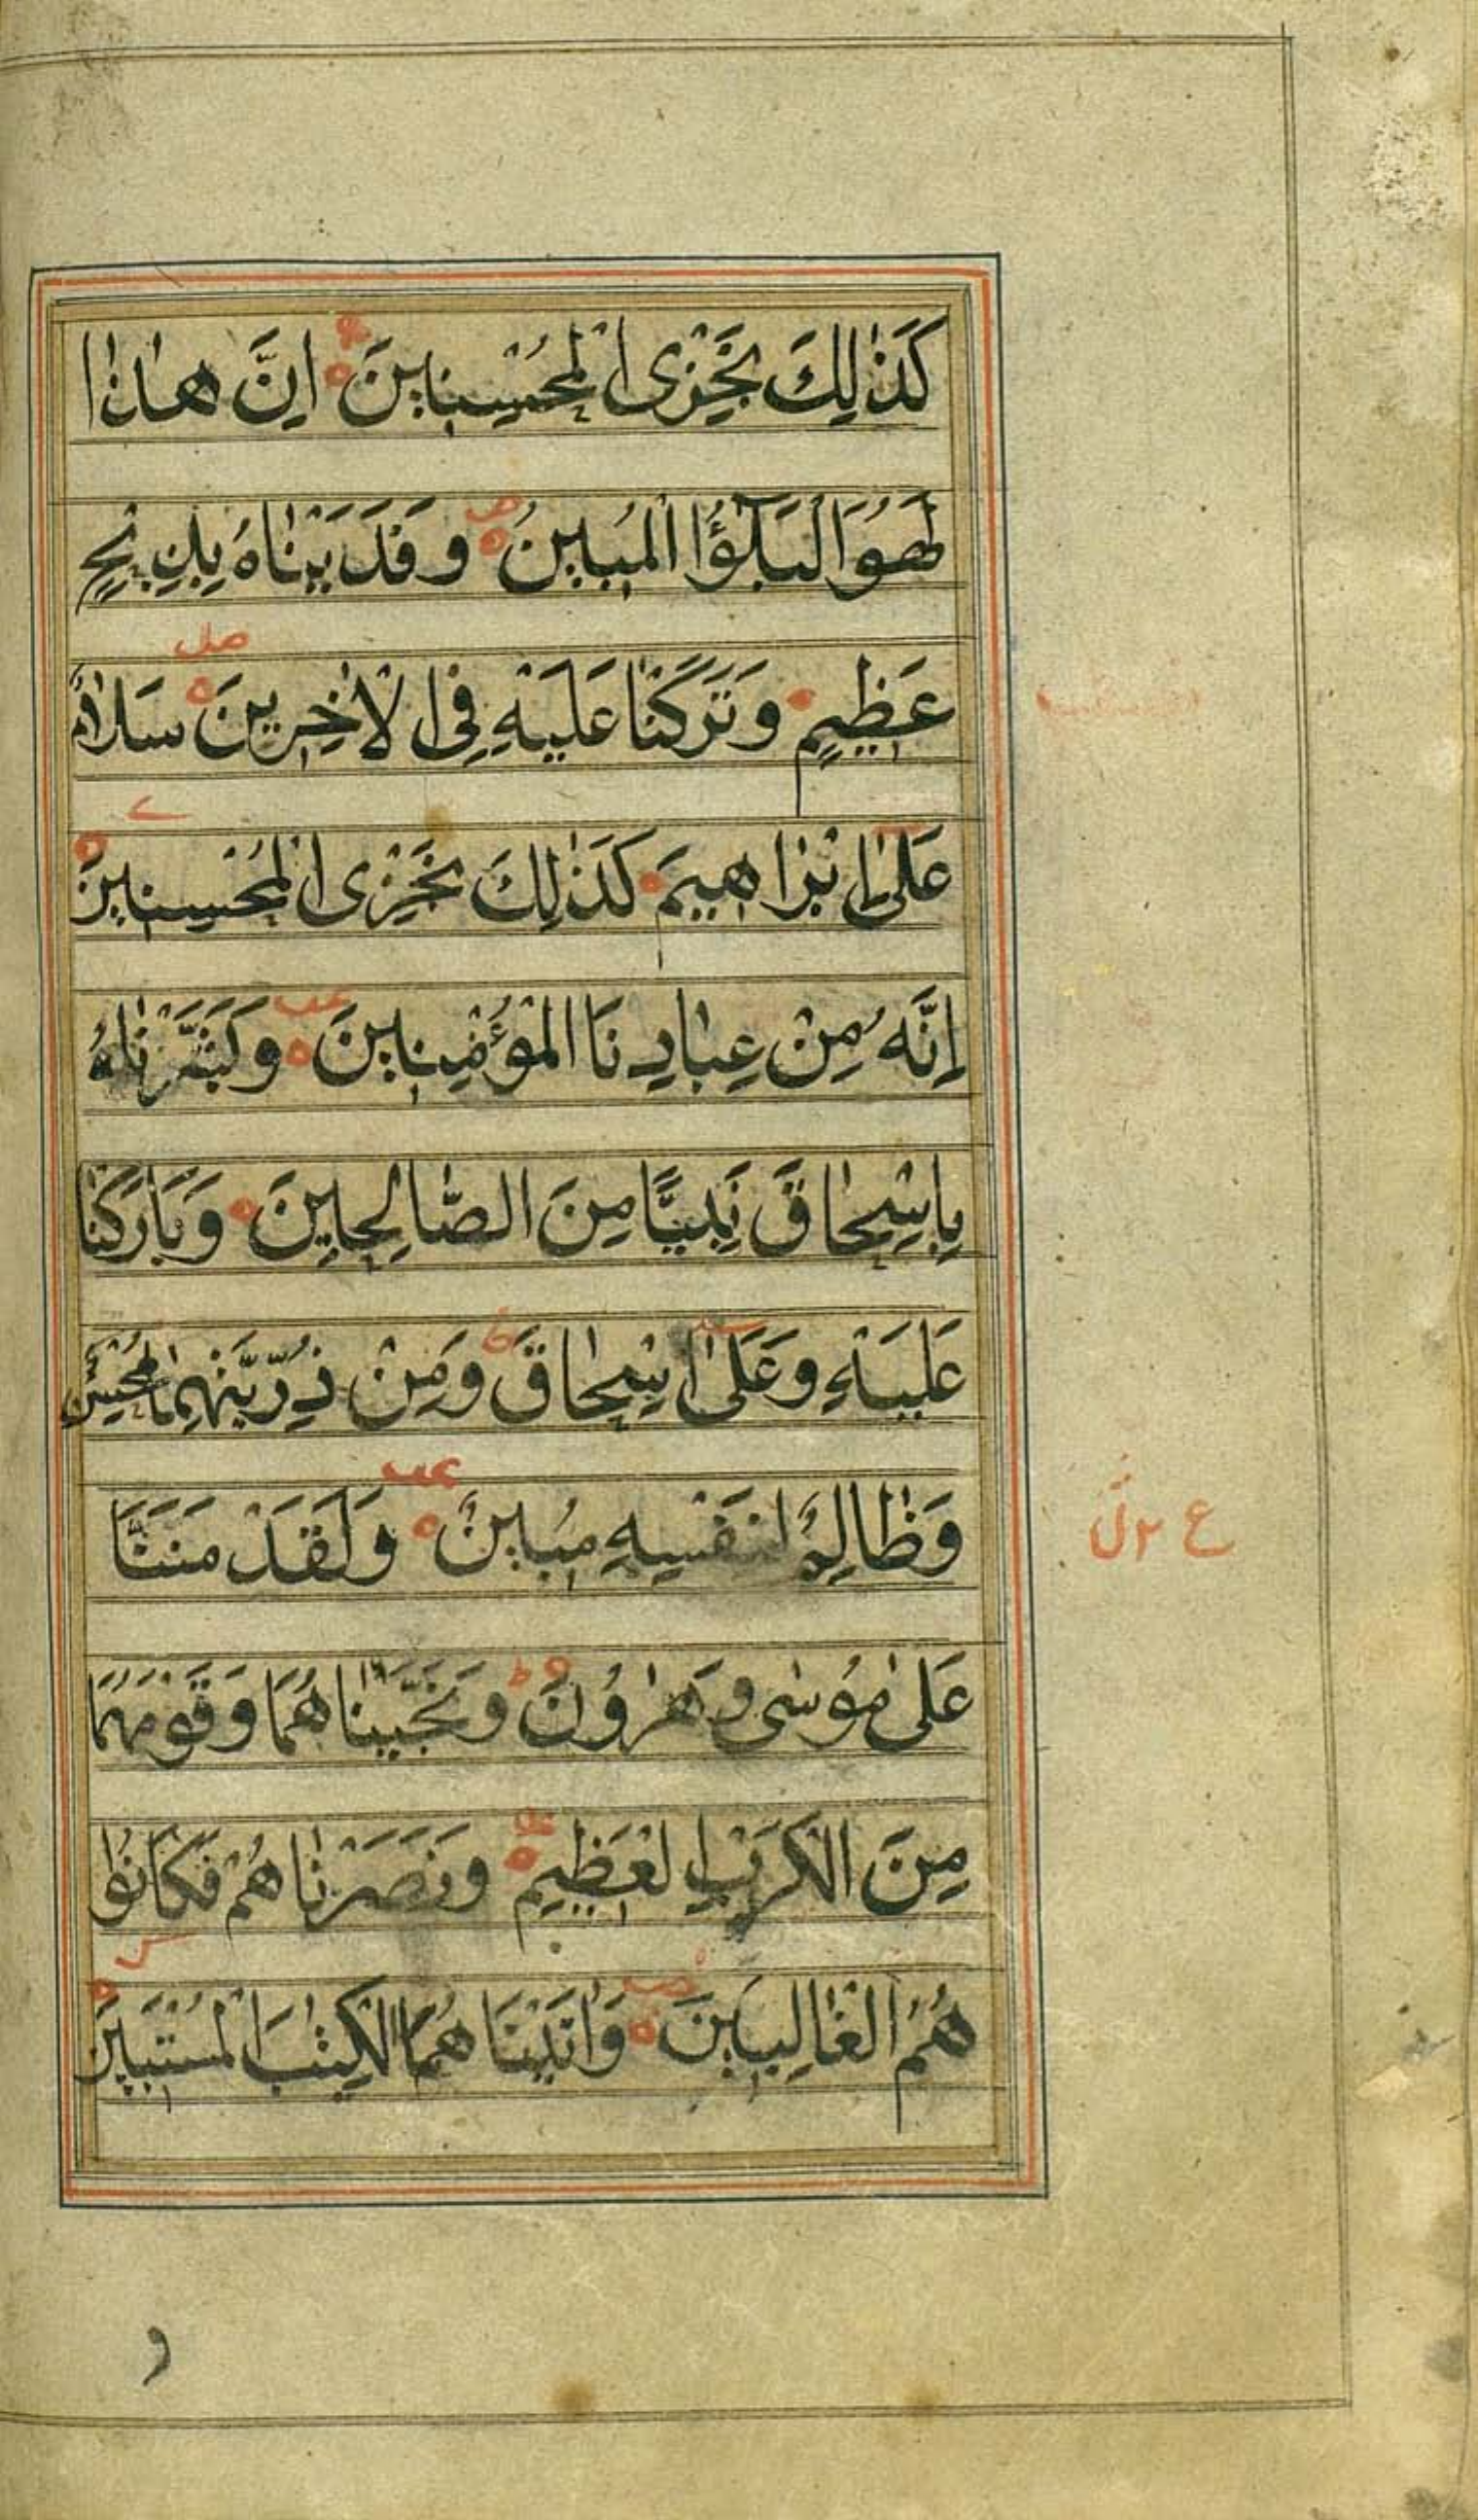 كَذٰلِكَ نَجْزِى الْمُحْسِنِينَ اِنَّ هٰاذٰا
لَهُوَ الْبَلٰٓؤُا الْمُبِينُ وَفَدَيْنٰاهُ بِذِبْحٍ
عَظِيمٍ وَتَرَكْنٰا عَلَيْهِ فِى الْاٰخِرِينَ سَلٰامٌ
عَلٰى اِبْرٰاهِيمَ كَذٰلِكَ نَجْزِى الْمُحْسِنِينَ
اِنَّهُ مِنْ عِبٰادِنَا الْمُؤْمِنِينَ وَبَشَّرْنٰاهُ
بِاِسْحٰاقَ نَبِيًّا مِنَ الصّٰالِحِينَ وَبٰارَكْنٰا
عَلَيْهِ وَعَلٰى اِسْحٰاقَ وَمِنْ ذُرِّيَّتِهِمٰا مُحْسِنٌ
وَظٰالِمٌ لِنَفْسِهِ مُبِينٌ وَلَقَدْ مَنَنَّا
عَلٰى مُوسٰى وَهٰرُونَ وَنَجَّيْنٰاهُمَا وَقَوْمَهُمَا
مِنَ الْكَرْبِ الْعَظِيمِ وَنَصَرْنٰاهُمْ فَكَانُوا
هُمُ الْغٰالِبِينَ وَاٰتَيْنَاهُمَا الْكِتٰبَ الْمُسْتَبِينَ
و